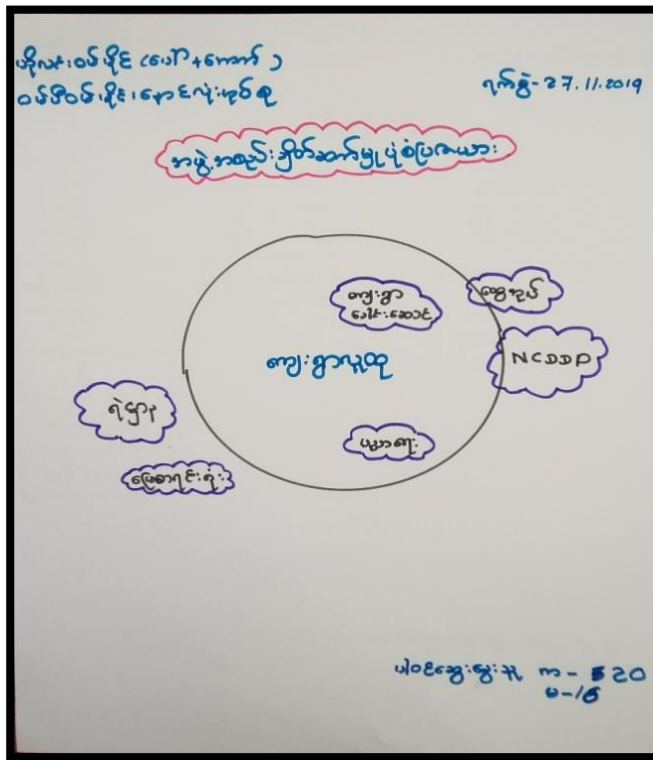 ဟိုလင်းဝမ်ခိုင် (ပေါ် + အောက်)
ဝမ်ဗီဝမ်ခိုင်၊ နောင်လုံးအုပ်စု
ရက်စွဲ - 27.11.2019
အဖွဲ့အစည်းချိတ်ဆက်မှုပုံစံပြဇယား
ကျေးရွာ
ခေါင်းဆောင်
ငွေအုပ်
ကျေးရွာလူထု
NCDDP
ရဲဌာန
ဘာရေး
မြေစာရင်းရုံး
ပါဝင်ဆွေးနွေးသူ က - 20
မ - 16